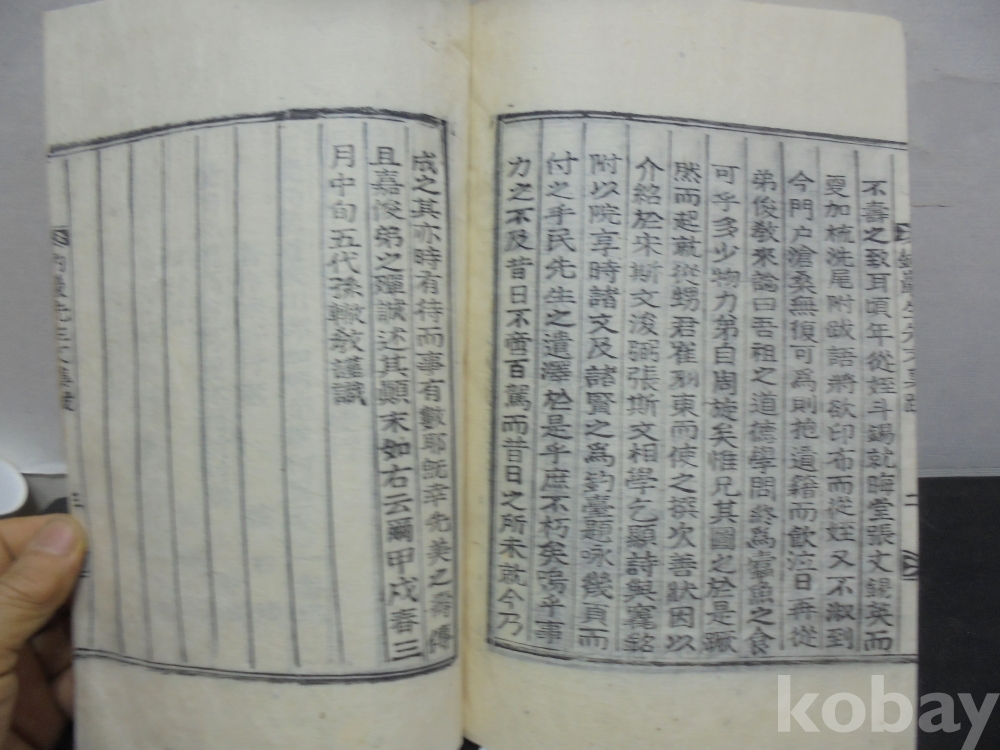 不壽之致耳頃年從姪斗錫就晦堂張文錫英而
更加梳洗尾附跋語將欲印布而從姪又不淑到
今門戶滄桑無復可爲則抱遺籍而飮泣日再從
弟俊敎來諭曰吾祖之道德學問終爲蠹魚之食
可乎多少物力弟自周旋矣惟兄其圖之於是蹶
然而起就從甥君崔 東而使之撰次善狀因以
介紹於宋斯文浚弼張斯文相學乞顯詩與窀銘
附以院享時諸文及諸賢之爲釣臺題咏幾頁而
付之乎民先生之遺澤於是乎庶不朽矣 乎事
力之不及昔日不啻百駕而昔日之所未就今乃
成之其亦時有待而事有數耶旣幸先美之壽傳
且嘉俊弟之殫誠述其顚末如右云爾甲戌春三
月中旬五代孫 敎謹識
先生文集跋
二
三
kobay